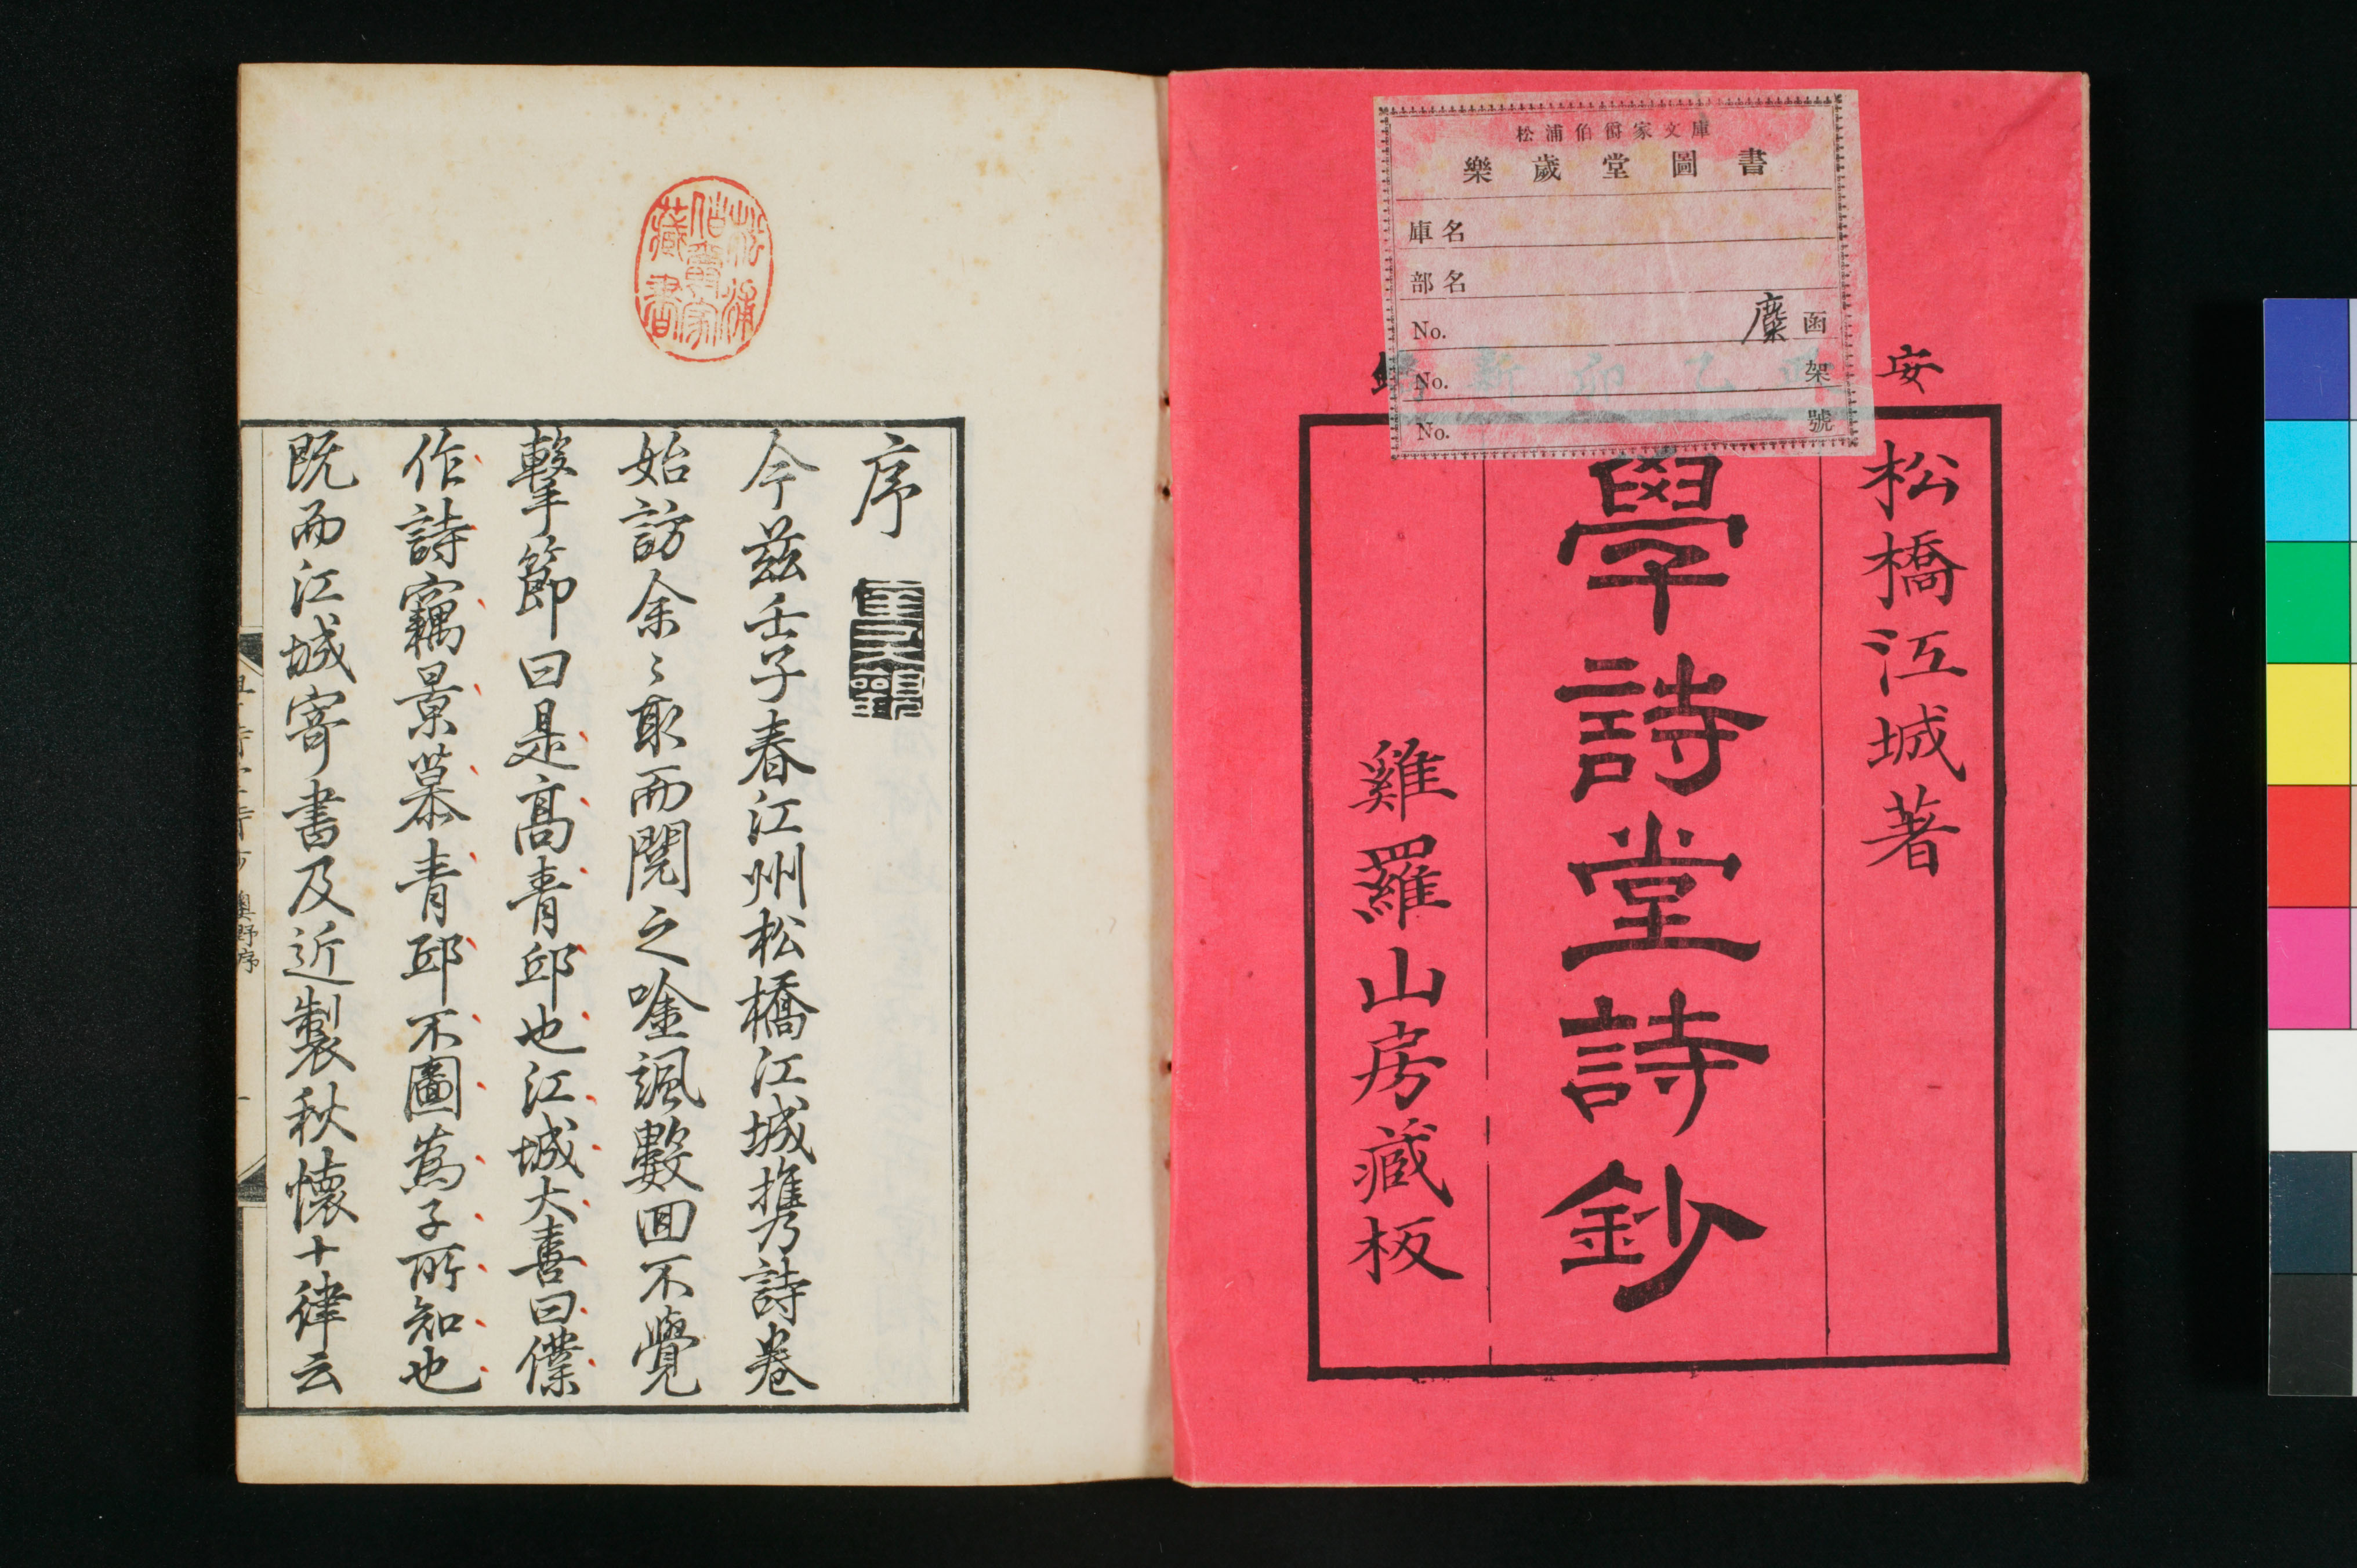 松浦伯爵家文庫
樂歲堂圖書
庫名
部名
No. 糜 函
No. 架
No. 號
安政乙卯新鐫
松橋江城著
學詩堂詩鈔
雞羅山房藏板
松浦
伯爵家
藏書
序
今茲壬子春江州松橋江城携詩卷
始訪余〻取而閱之唫諷數回不覺
擊節曰是高青邱也江城大喜曰僕
作詩竊景慕青邱不圖為子所知也
既而江城寄書及近製秋懷十律云
奧野序
一